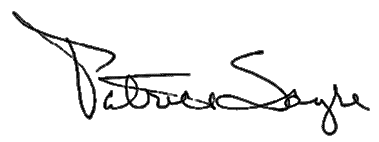 Patrice Sayre